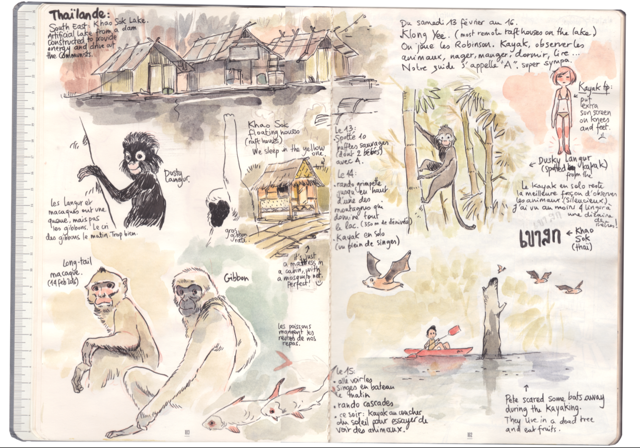 Thaïlande:
South East, Khao Sok Lake.
Artificial lake from a dam
constructed to provide
energy and
the
Du samedi 13 février au 16.
Klong Yee. (most remote raft houses on the lake)
On joue les Robinson. Kayak, observer les
animaux, nager, manger, dormir, lire...
Notre guide s'appelle "A", super sympa.
Kayak tip:
put
extra
sun screen
on knees
and feet.
Dusky
Langur
Khao Sok
floating houses
(raft houses)
We sleep in the yellow
one.
Le 13:
(dont 2 bébés)
avec A.
Le 14:
rando grimpette
jusqu'en haut
d'une des
montagnes qui
domine tout
le lac.
Kayak en solo
(un plein de singes)
Dusky Langur
from the
Le kayak en solo reste
la meilleure façon d'observer
les animaux (silencieux).
J'ai vu au moins
une dizaine
de
Khao
Sok
(thaï)
Les langur et
macaques ont une
queue, mais pas
les gibbons. Le cri
des gibbons le matin. Trop bien
Just
a mattress
in a cabin, with
a mosquito net
Perfect!
Long-tail
macaque.
(14 feb 2016)
Gibbon
Les poissons
mangent les
restes de nos
repas.
Le 15:
aller voir les
singes en bateau
le matin
rando cascades
ce soir: kayak au coucher
du soleil pour essayer de
voir des animaux.
Pete scared some bats away
during the kayaking.
They live in a dead tree
and eat fruits.